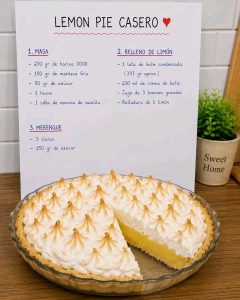 LEMON PIE CASERO ♥
1. MASA
- 200 gr de harina 0000
- 100 gr de manteca fría
- 50 gr de azúcar
- 1 huevo
- 1 cdta esencia de vainilla
2. RELLENO DE LIMÓN
- 1 lata de leche condensada
(397 gr aprox.)
- 200 ml de crema de leche
- Jugo de 3 limones grandes
- Ralladura de 1 limón
3. MERENGUE
- 3 claras
- 150 gr de azúcar
Sweet
Home